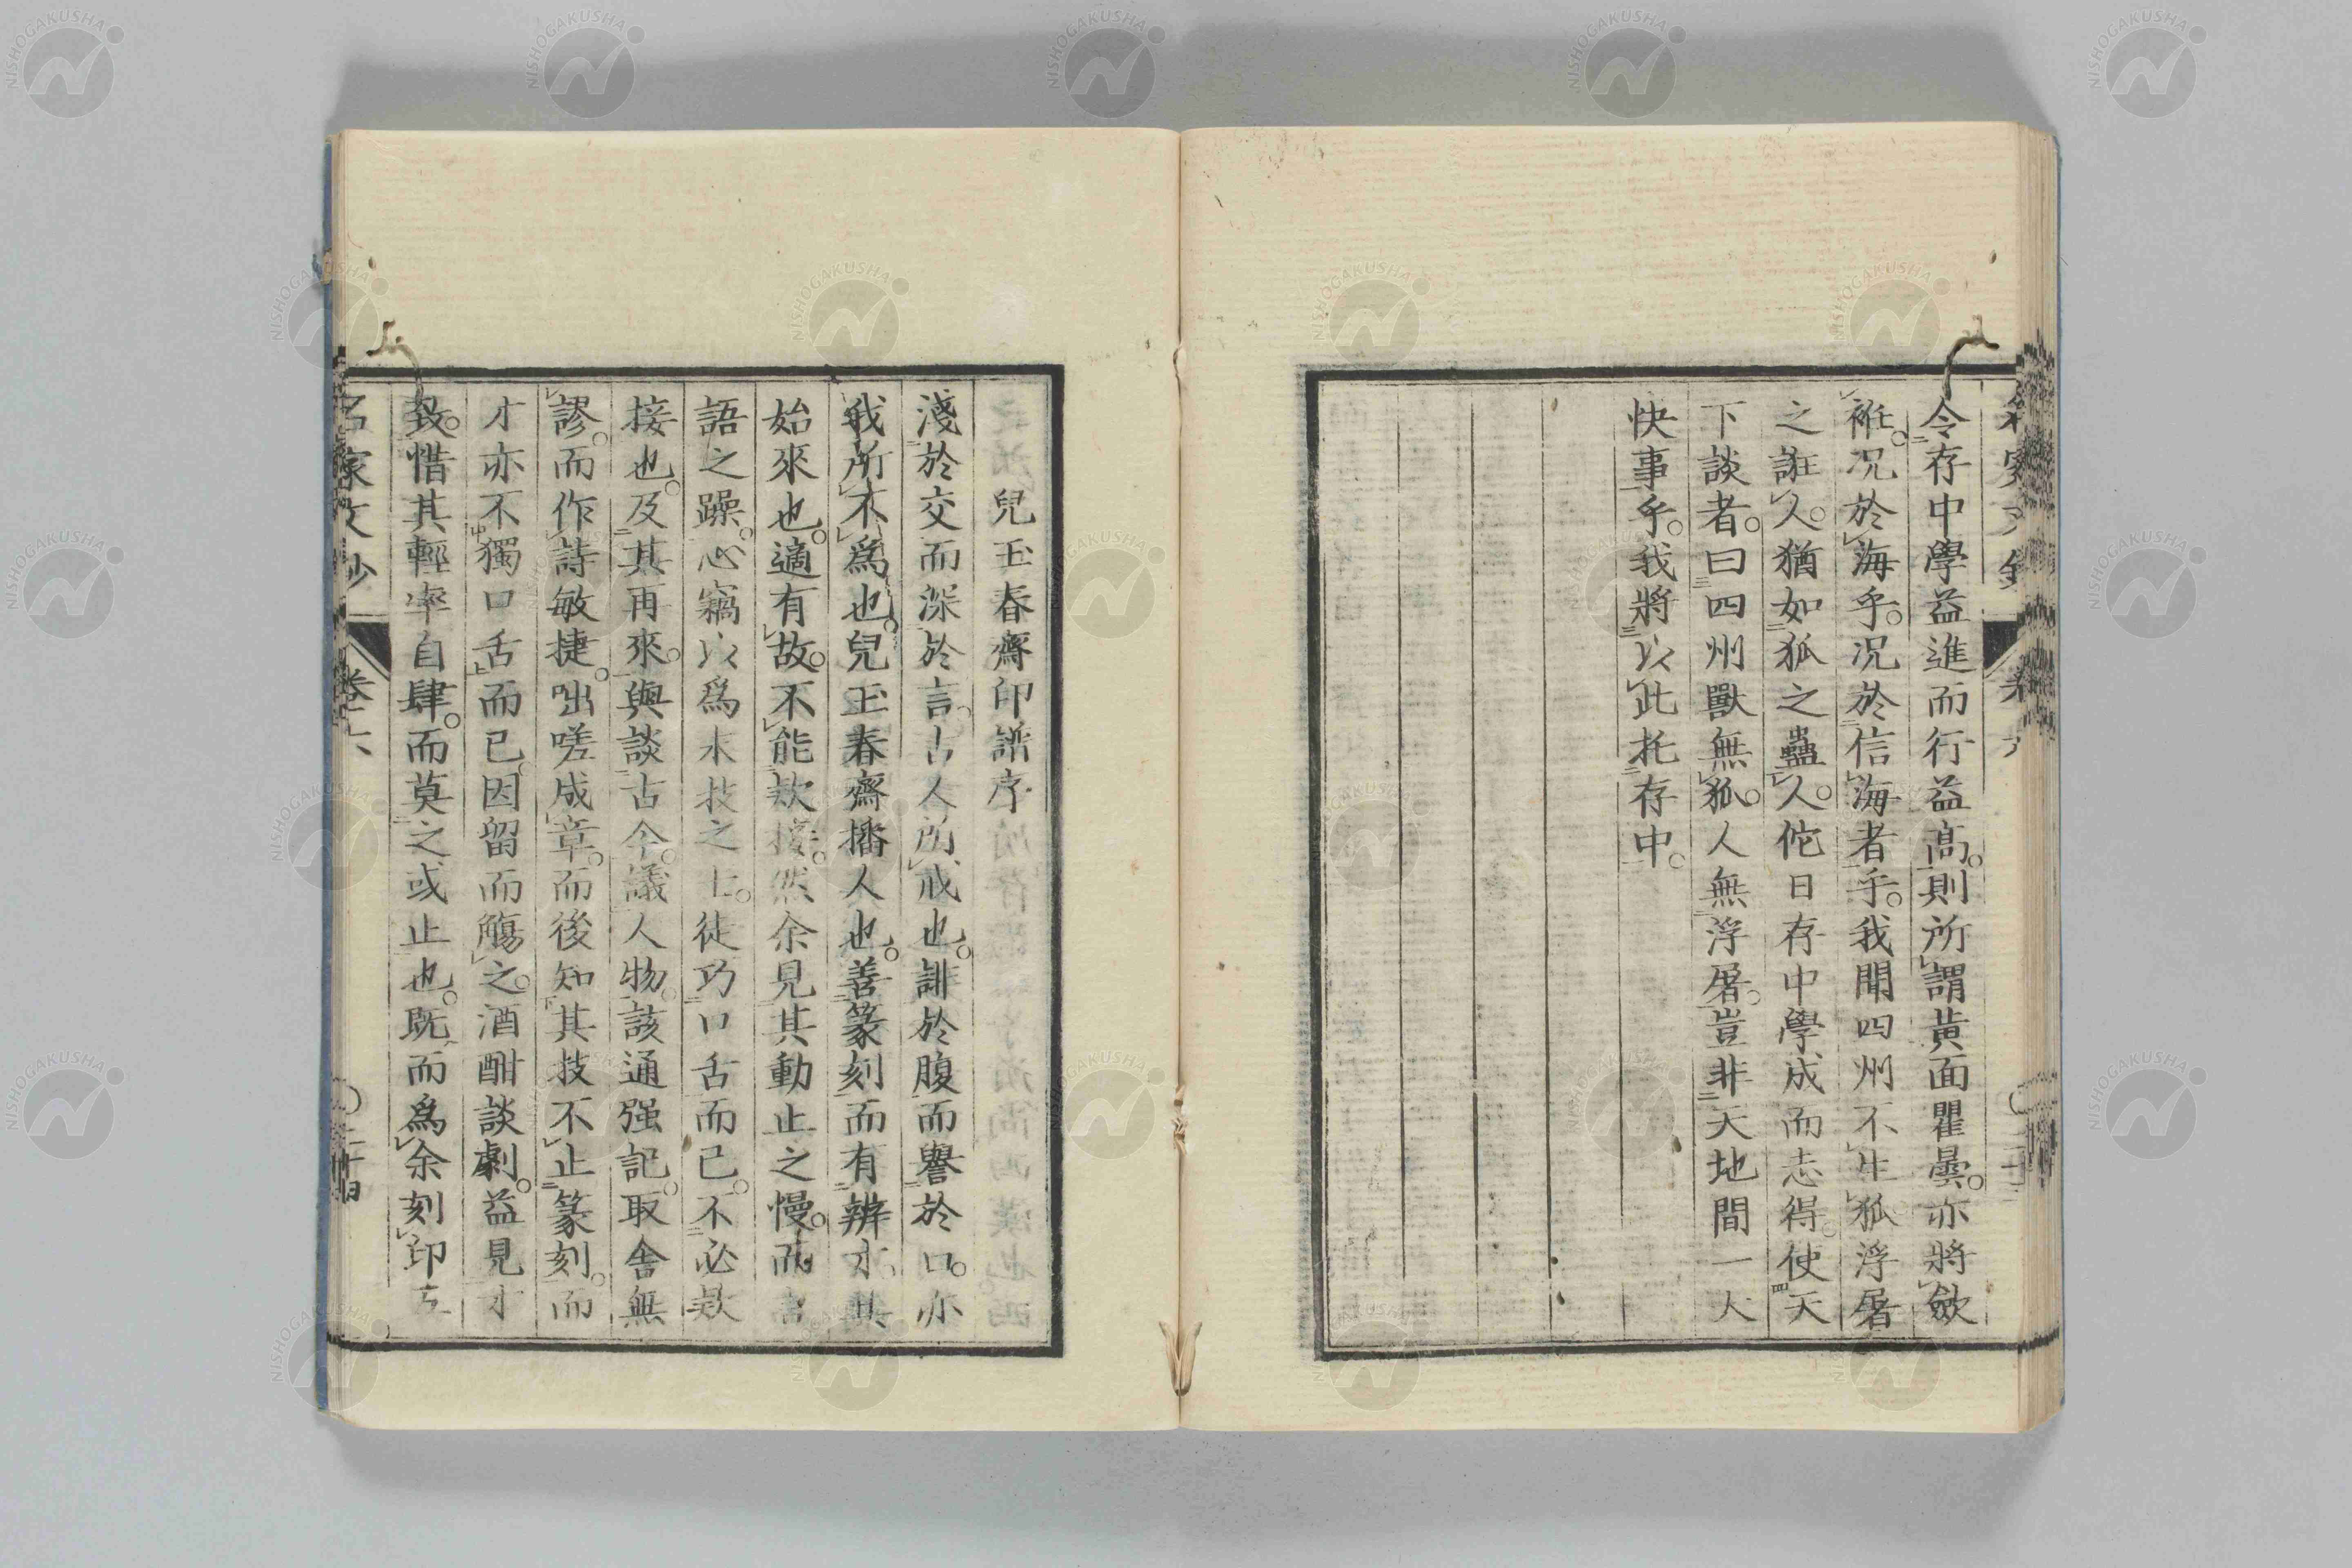 令存中學益進而行益高。則所謂黄面瞿曇。亦將斂
袵。况於海乎。况於信海者乎。我聞四州不生狐浮屠
之誑人。猶如狐之蠱人。佗日存中學成而志得。使天
下談者。曰四州獸無狐。人無浮屠。豈非天地間一大
快事乎。我將以此托存中。
兒玉春齋印譜序
淺於交而深於言。古人所戒也。誹於腹而譽於口。亦
我所不爲也。兒玉春齋播人也。善篆刻而有辨才。其
始來也。適有故。不能欵接。然余見其動止之慢。而言
語之躁。心竊以爲末技之士。徒巧口舌而已。不必欵
接也。及其再來。與談古今。議人物。該通强記。取舍無
謬。而作詩敏捷。咄嗟成章。而後知其技不止篆刻。而
才亦不獨口舌而已。因留而觴之。酒酣談劇。益見才
致。惜其輕率自肆。而莫之或止也。既而爲余刻印五
名家文抄
卷六
NISHOGAKUSHA